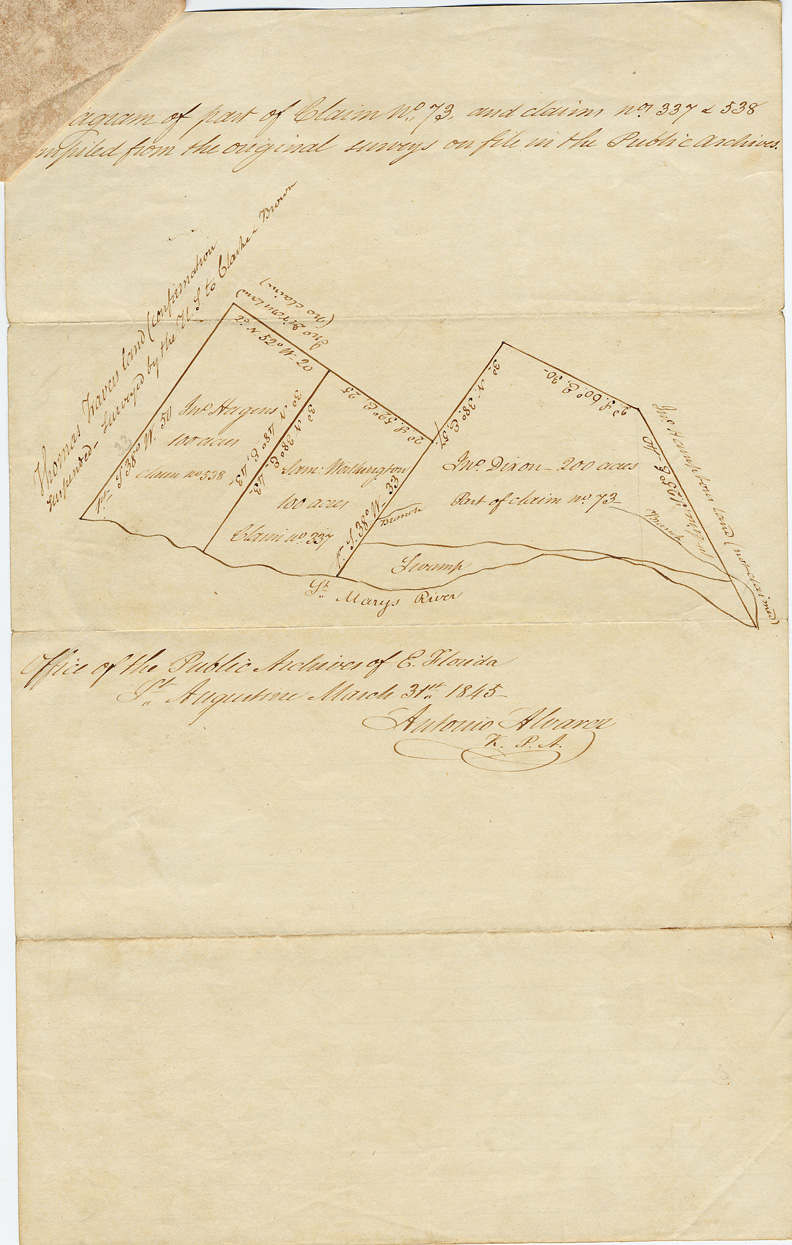 agram of part of Claim No. 73. and claims nos. 337 & 538
mpiled from the original surveys on file in the Public Archives.
Thomas Travers land (confirmation
suspended - surveyed by the U. S. to Clarke & Brown
(no claim)
2d. N 52° W. 20
1st. S. 38° W. 50
33
Jno. Hagens
100 acres
Claim no. 538
3d. N. 38° E. 43.
3d. N. 48° E. 43.
2d. S. 52° E. 25
Sam. Washington
100 acres
Claim no. 337
1st. S. 38° W. 33
Branch
3d. N. 38° E. 51.
2d. S. 60° E. 30.
Jno. Dixon - 200 acres
Part of claim no. 73
Branch
Jno. Hamptons land (not claimed)
Swamp
St. Marys River
Office of the Public Archives of E. Florida
St. Augustine March 31st. 1845-
Antonio Alvarez
K. P. A.